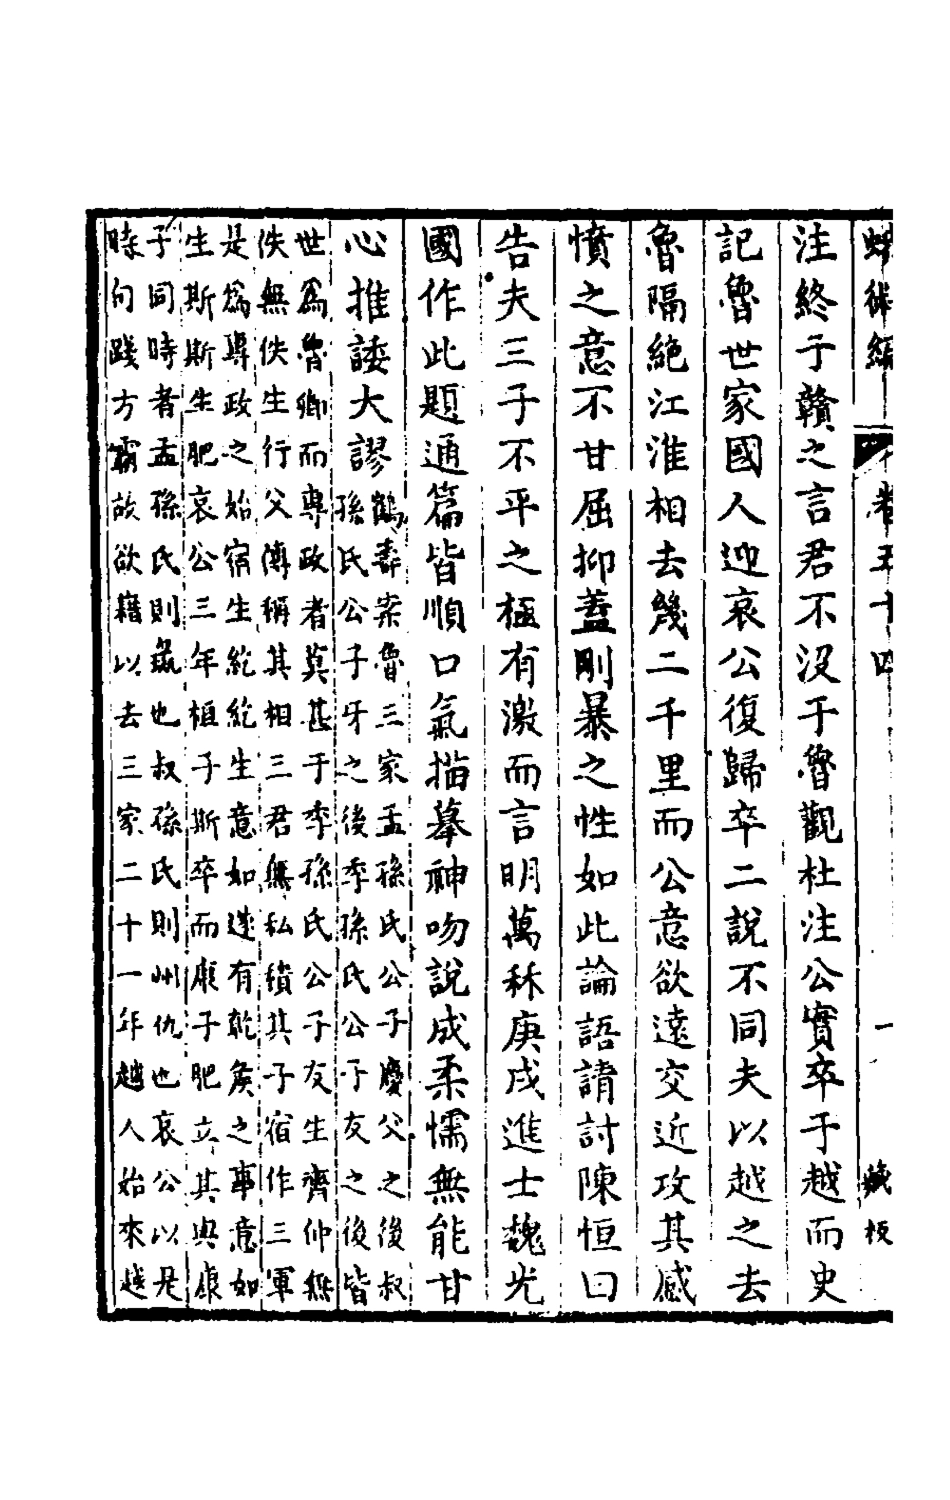 蛾術編 卷五十四 一 藏板
注終于贛之言君不沒于魯觀杜注公實卒于越而史
記魯世家國人迎哀公復歸卒二說不同夫以越之去
魯隔絕江淮相去幾二千里而公意欲遠交近攻其感
憤之意不甘屈抑蓋剛暴之性如此論語請討陳恒曰
告夫三子不平之極有激而言明萬秝庚戌進士魏光
國作此題通篇皆順口氣描摹神吻說成柔懦無能甘
心推諉大謬
鶴壽案魯三家孟孫氏公子慶父之後叔
孫氏公子牙之後季孫氏公子友之後皆
世為魯卿而專政者莫甚于季孫氏公子友生齊仲無
佚無佚生行父傳稱其相三君無私積其子宿作三軍
是為專政之始宿生紇紇生意如遂有乾侯之事意如
生斯斯生肥哀公三年桓子斯卒而康子肥立其與康
子同時者孟孫氏則彘也叔孫氏則州仇也哀公以是
時句踐方霸故欲藉以去三家二十一年越人始來越